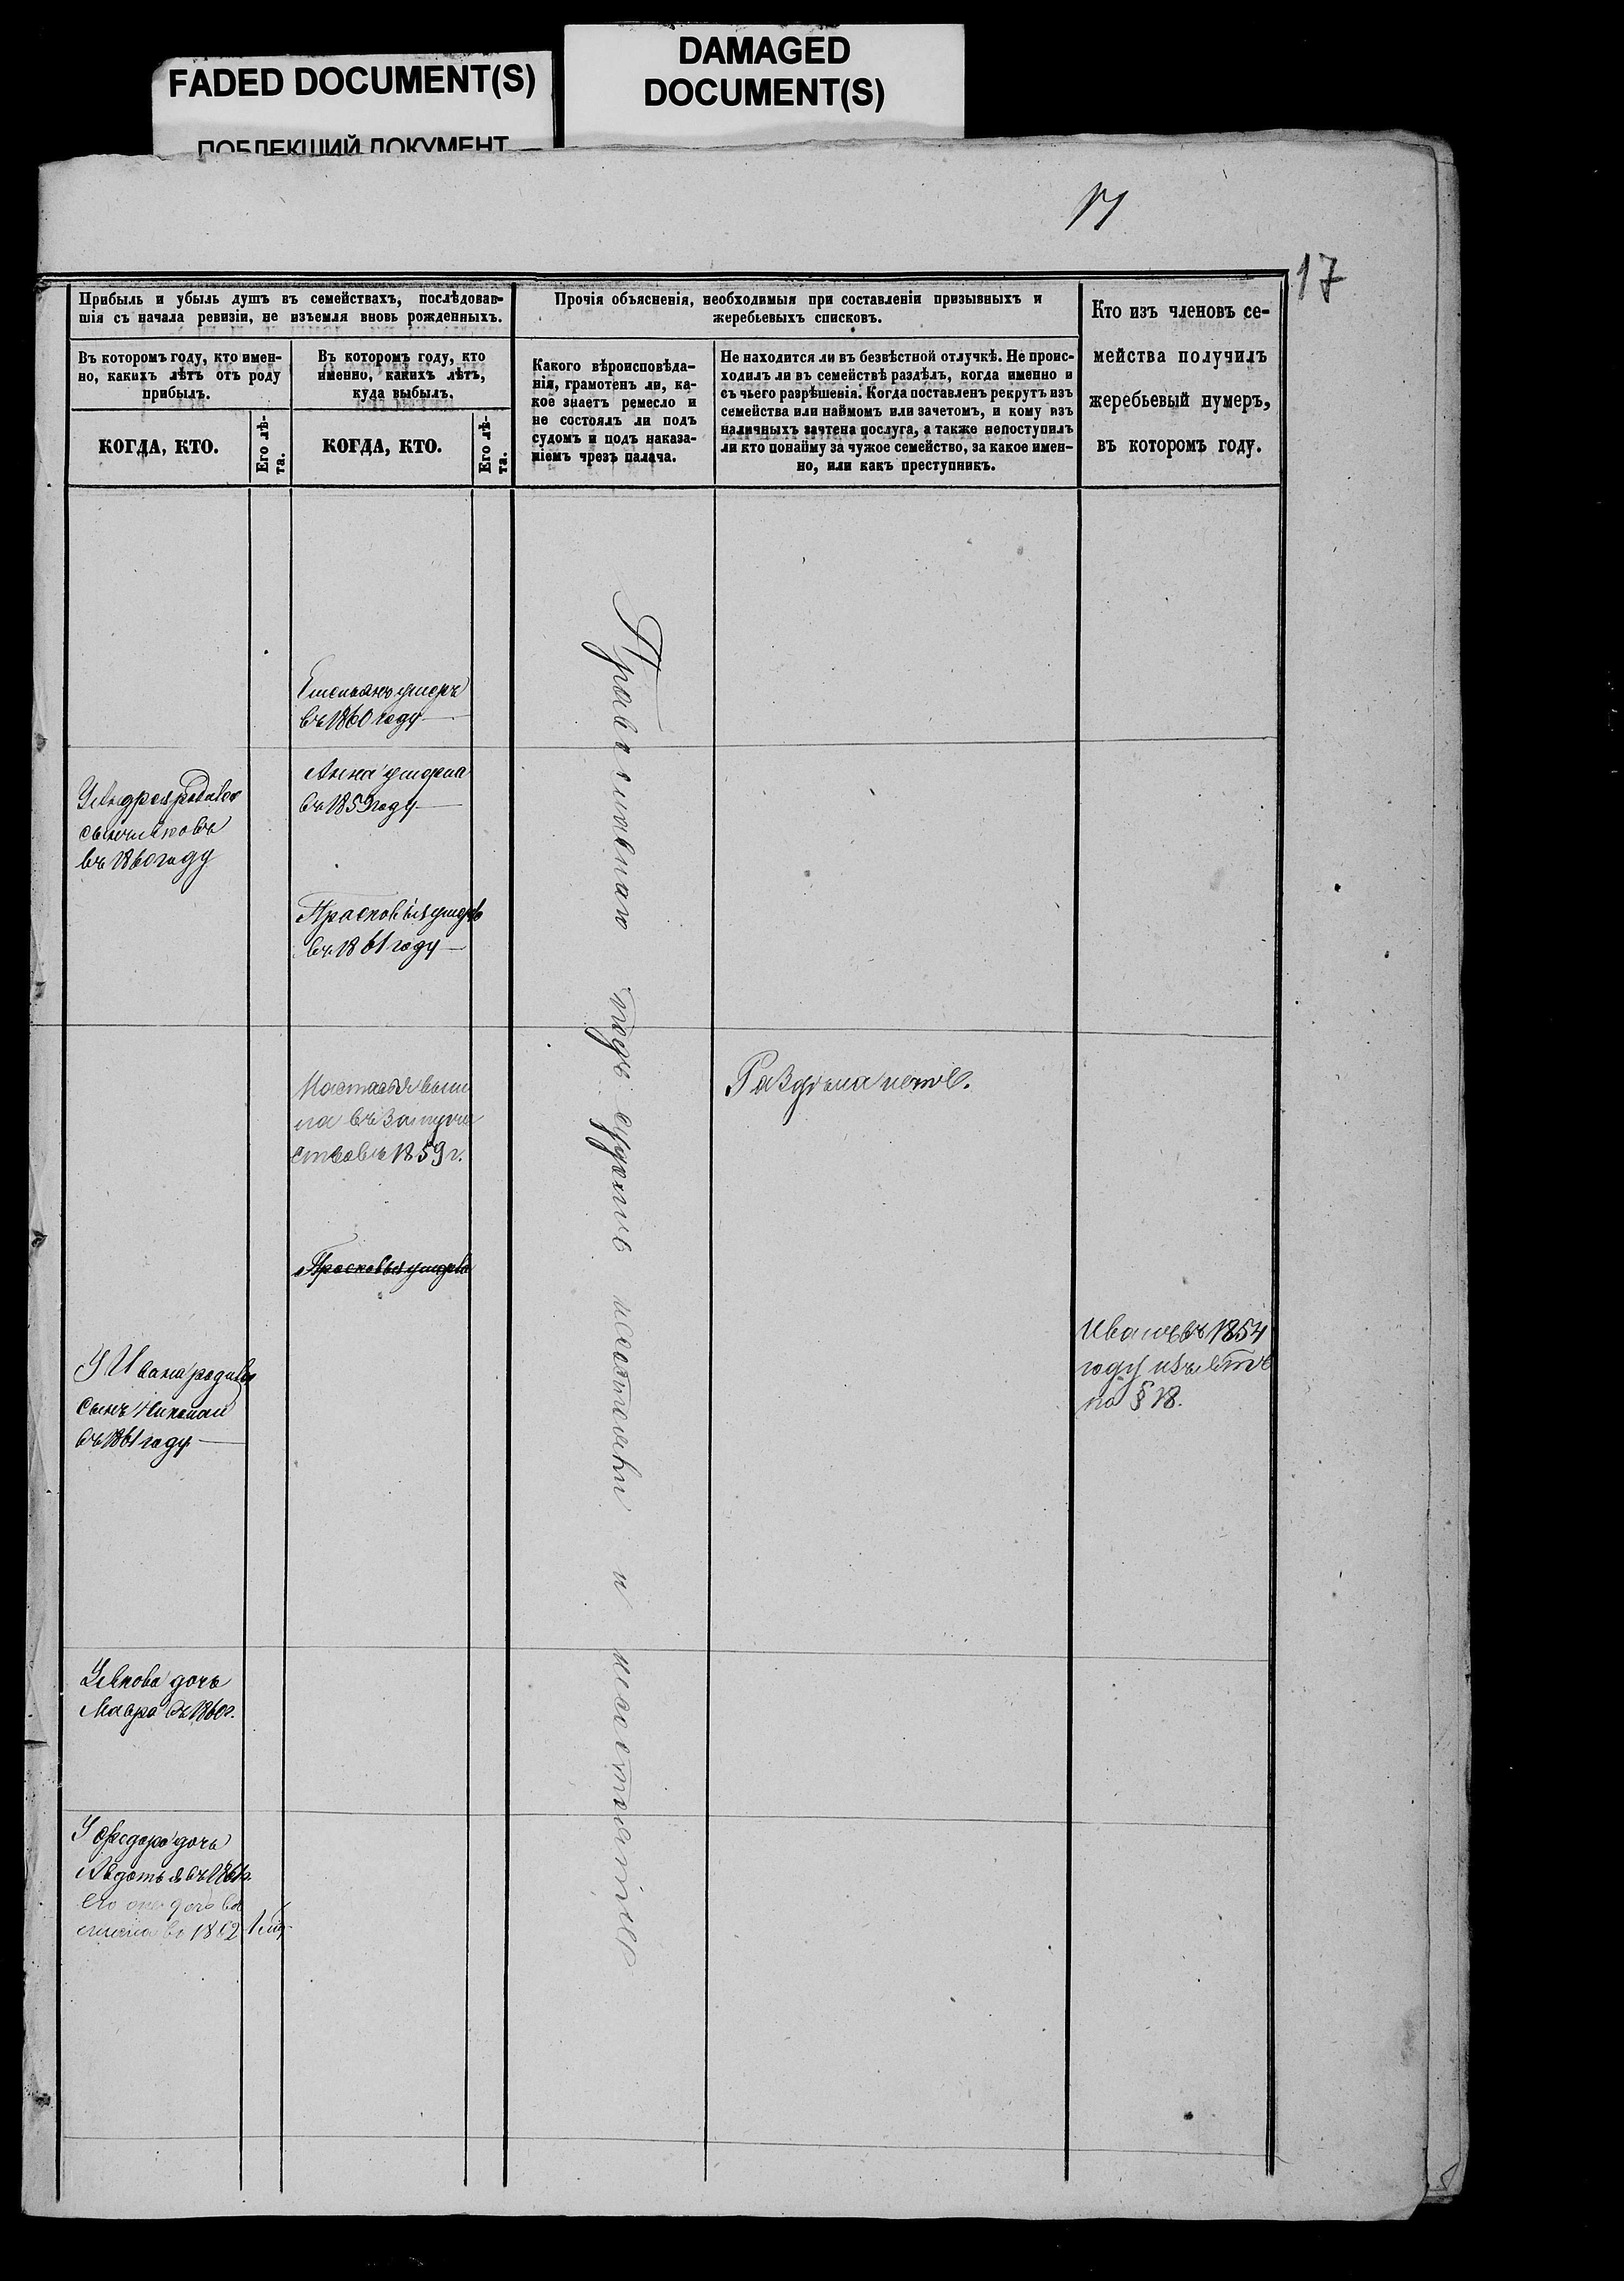 FADED DOCUMENT(S)
ПОБЛЕКШИЙ ДОКУМЕНТ
DAMAGED
DOCUMENT(S)
17
17
Прибыль и убыль душъ въ семействахъ, послѣдовав-
шія съ начала ревизіи, не изъемля вновь рожденныхъ.
Прочія объясненія, необходимыя при составленіи призывныхъ и
жеребьевыхъ списковъ.
Кто изъ членовъ се-
мейства получилъ
жеребьевый нумеръ,
въ которомъ году.
Въ которомъ году, кто имен-
но, какихъ лѣтъ отъ роду
прибылъ.
Въ которомъ году, кто
именно, какихъ лѣтъ,
куда выбылъ.
Какого вѣроисповѣда-
нія, грамотенъ ли, ка-
кое знаетъ ремесло и
не состоялъ ли подъ
судомъ и подъ наказа-
ніемъ чрезъ палача.
Не находится ли въ безвѣстной отлучкѣ. Не проис-
ходилъ ли въ семействѣ раздѣлъ, когда именно и
съ чьего разрѣшенія. Когда поставленъ рекрутъ изъ
семейства или наймомъ или зачетомъ, и кому изъ
наличныхъ зачтена послуга, а также непоступилъ
ли кто понайму за чужое семейство, за какое имен-
но, или какъ преступникъ.
КОГДА, КТО.
Его лѣ-
та.
КОГДА, КТО.
Его лѣ-
та.
Емельянъ умеръ
въ 1860 году
Анна умерла
въ 1859 году
У Андрея родился
сынъ Яковъ
въ 1860 году
Прасковья умерла
въ 1861 году
Настасья выш
ла въ замуже
ство въ 1859 г.
Раздѣла нетъ.
Прасковья умерла
Иванъ въ 1854
году изъятъ
по § 18.
У Ивана родился
сынъ Николай
въ 1861 году
У Якова дочь
Мавра въ 1860 г.
У Федора дочь
Авдотья въ 1861 г.
его же дочь Ва
въ 1862
Православнаго подъ судомъ несостояли и несостоятъ